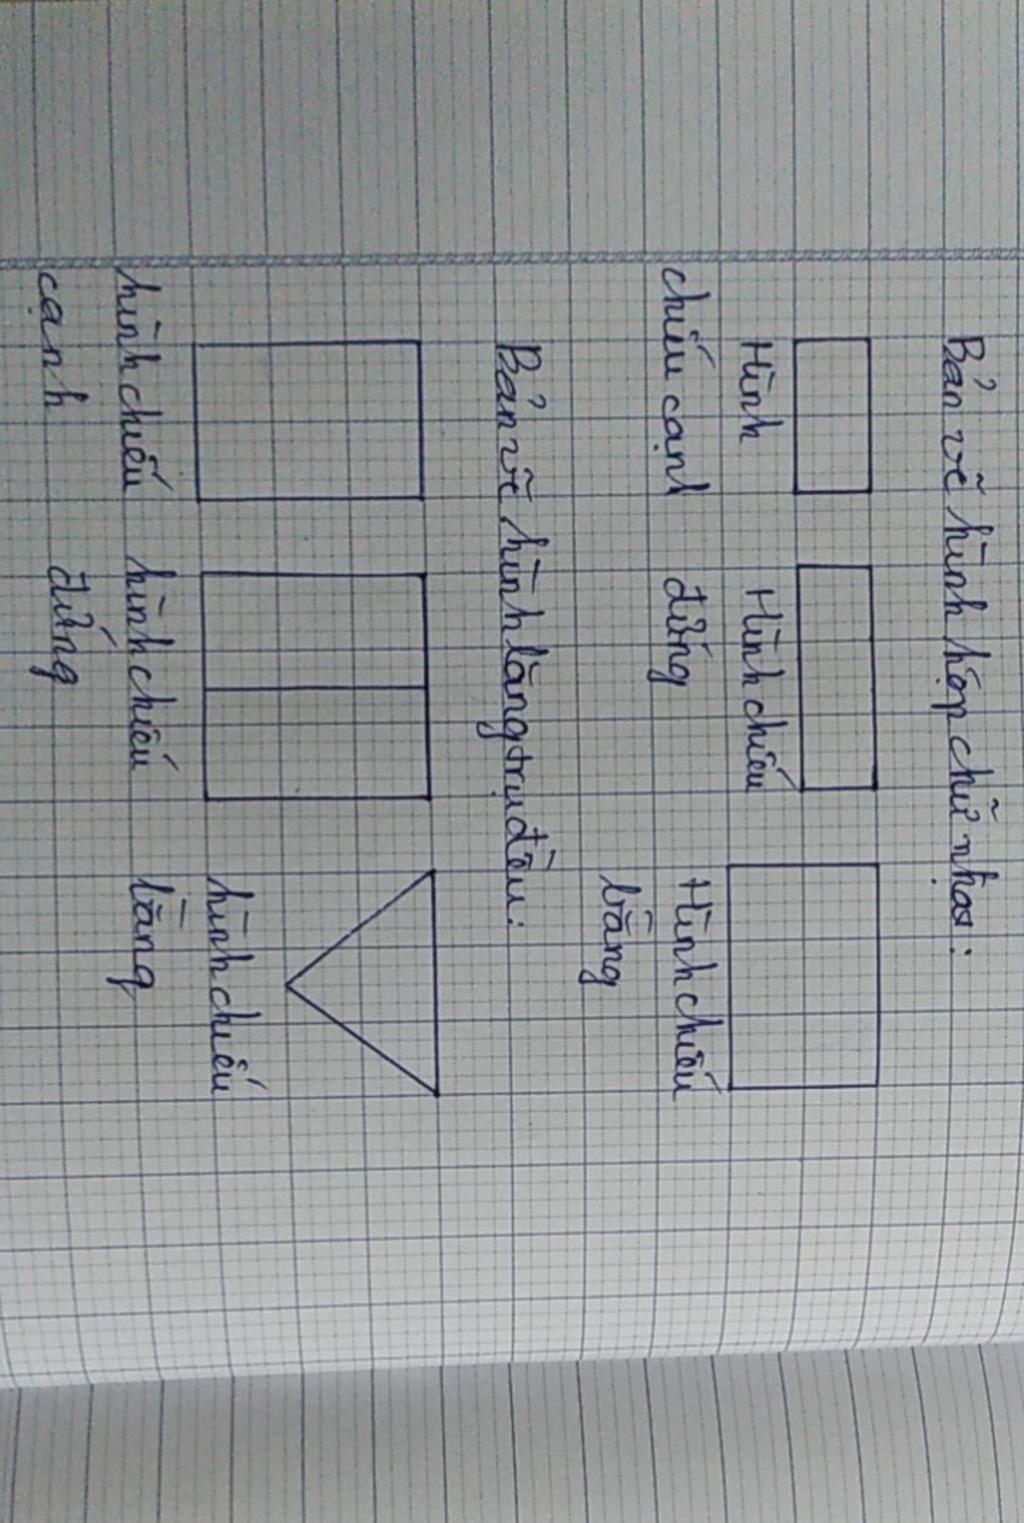 Bản vẽ hình hộp chữ nhật:
Hình
chiếu cạnh
Hình chiếu
đứng
Hình chiếu
bằng
Bản vẽ hình lăng trụ đều:
hình chiếu
cạnh
hình chiếu
đứng
hình chiếu
bằng